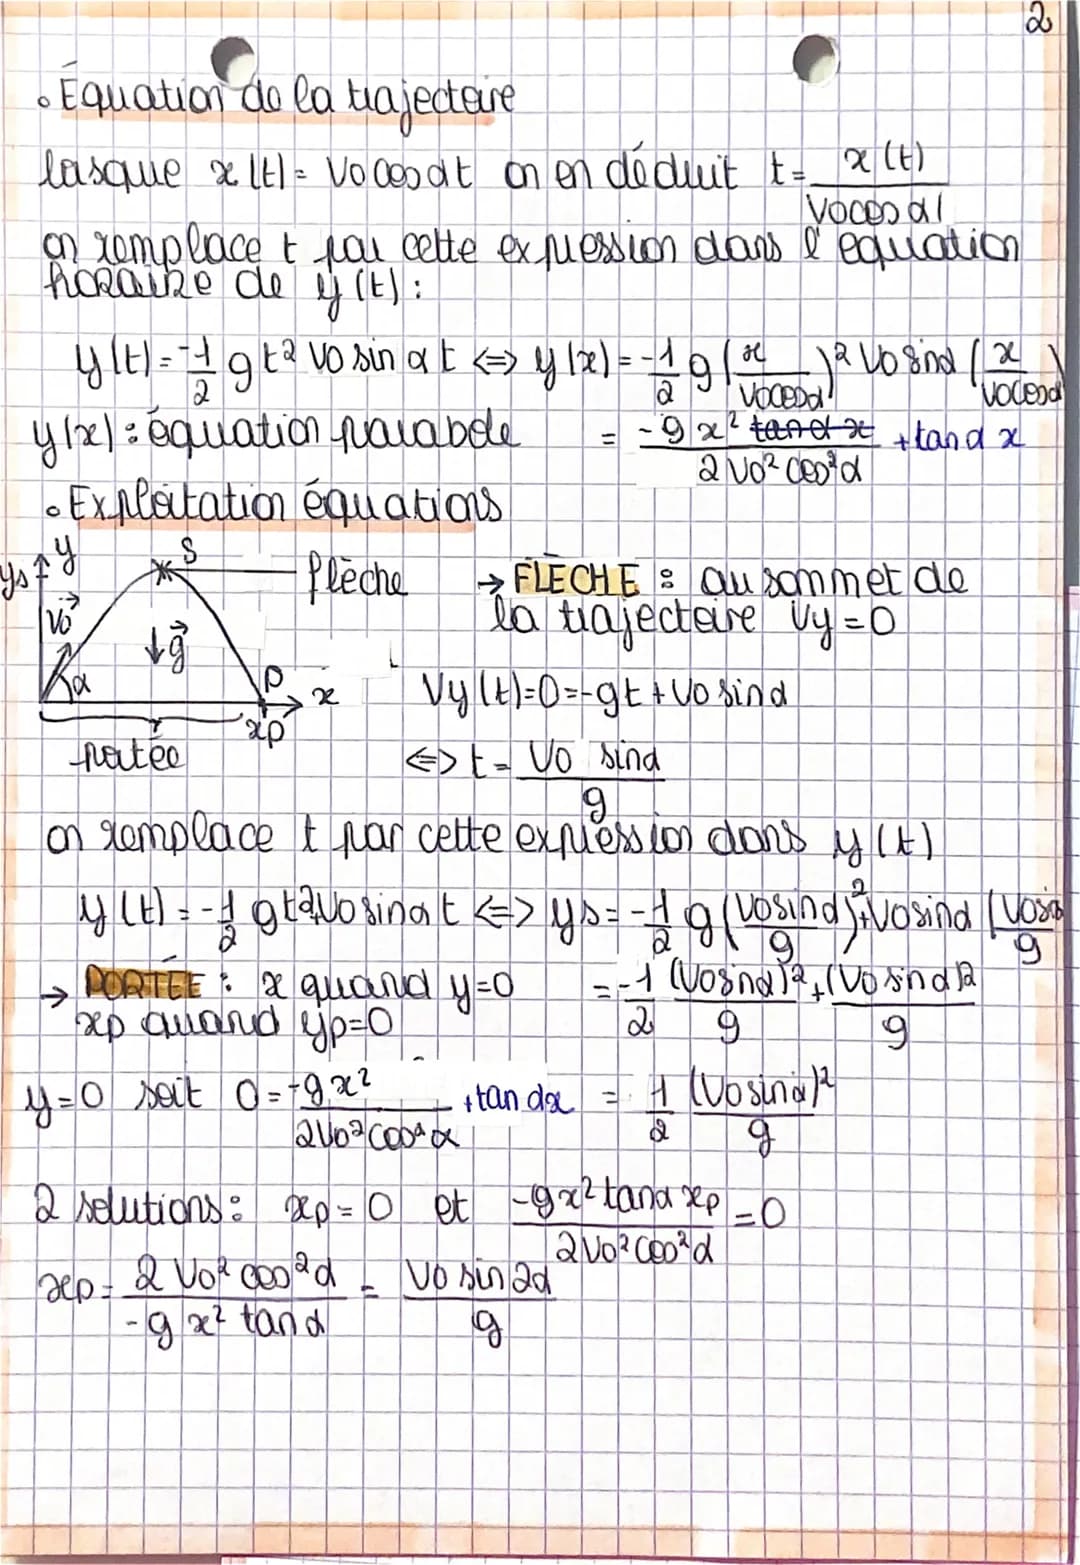 2
• Équation de la trajectoire
lorsque x(t) = V0 cosαt on en déduit t = x(t) / V0 cosα
on remplace t par cette expression dans l'équation
horaire de y(t) :
y(t) = -1/2 gt² V0 sin αt ⇔ y(x) = -1/2 g (x / V0cosα)² V0 sinα (x / V0cosα)
y(x) : équation parabole = -g x² / 2 V0² cos²α + tanα x
• Exploitation équations
y S
ys flèche → FLÈCHE : au sommet de
V0 la trajectoire Vy = 0
↓g
α P x Vy(t) = 0 = -gt + V0 sinα
xp
portée ⇔ t = V0 sinα / g
on remplace t par cette expression dans y(t)
y(t) = -1/2 gt² + V0 sinα t ⇔ ys = -1/2 g (V0sinα / g)² + V0sinα (V0sinα / g
→ PORTÉE : x quand y=0 = -1/2 (V0sinα)² / g + (V0 sinα)² / g
xp quand yp=0
y=0 soit 0 = -g x² / 2V0² cos²α + tan αx = 1/2 (V0 sinα)² / g
2 solutions : xp = 0 et -gx² tanα xp / 2V0² cos²α = 0
xp = 2 V0² cos²α / -g x² tanα = V0 sin 2α / g